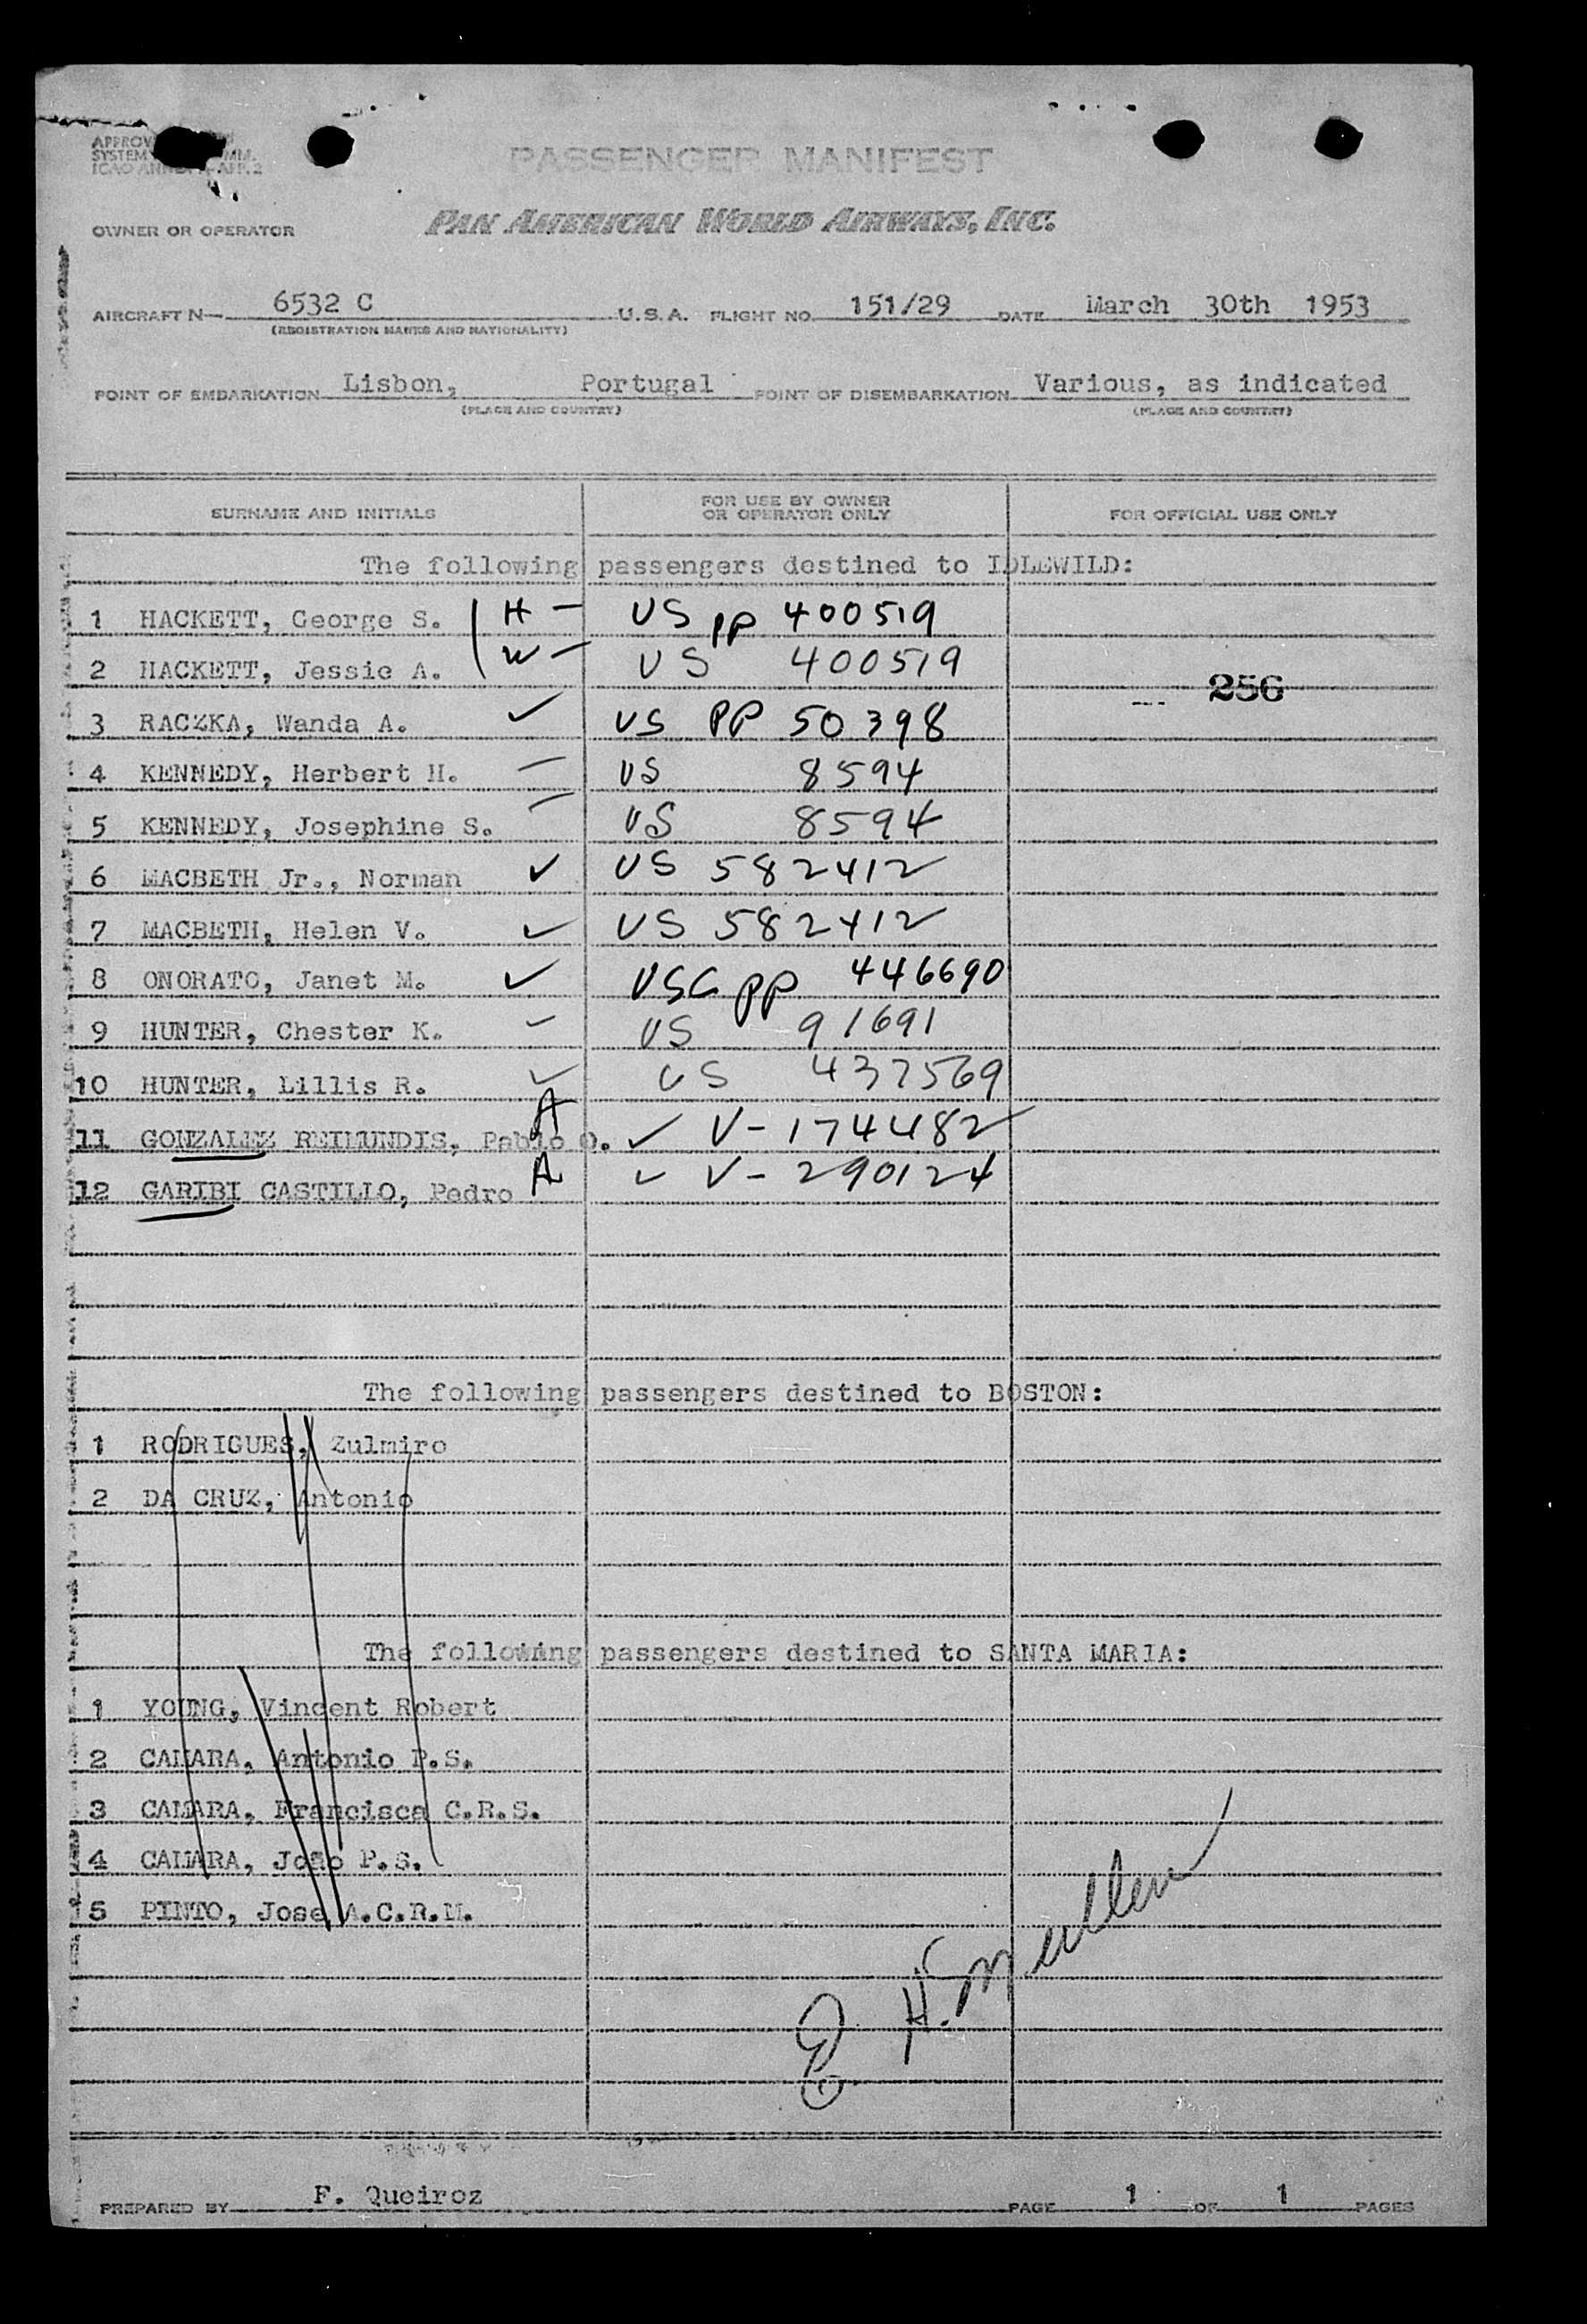 PASSENGER MANIFEST
OWNER OR OPERATOR PAN AMERICAN WORLD AIRWAYS, INC.
AIRCRAFT N— 6532 C U.S.A. FLIGHT NO. 151/29 DATE March 30th 1953
(REGISTRATION MARKS AND NATIONALITY)
POINT OF EMBARKATION Lisbon, Portugal POINT OF DISEMBARKATION Various, as indicated
(PLACE AND COUNTRY) (PLACE AND COUNTRY)
SURNAME AND INITIALS FOR USE BY OWNER OR OPERATOR ONLY FOR OFFICIAL USE ONLY
The following passengers destined to IDLEWILD:
1 HACKETT, George S. H – US PP 400519
2 HACKETT, Jessie A. W – US 400519
256
3 RACZKA, Wanda A. ✓ US PP 50398
4 KENNEDY, Herbert H. – US 8594
5 KENNEDY, Josephine S. – US 8594
6 MACBETH Jr., Norman ✓ US 582412
7 MACBETH, Helen V. ✓ US 582412
8 ONORATO, Janet M. ✓ USC PP 446690
9 HUNTER, Chester K. – US 91691
10 HUNTER, Lillis R. ✓ US 437569
11 GONZALEZ REIMUNDIS, Pablo O. A ✓ V-174482
12 GARIBI CASTILLO, Pedro A ✓ V-290124
The following passengers destined to BOSTON:
1 RODRIGUES, Zulmiro
2 DA CRUZ, Antonio
The following passengers destined to SANTA MARIA:
1 YOUNG, Vincent Robert
2 CAMARA, Antonio P.S.
3 CAMARA, Francisca C.R.S.
4 CAMARA, João P.S.
5 PINTO, Jose A.C.R.M.
E H. Mullen
PREPARED BY F. Queiroz PAGE 1 OF 1 PAGES